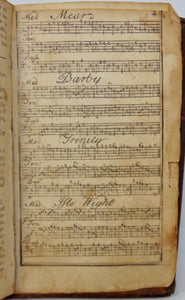 Med Mears 4
Ten
Bass
Med Darby
Ten
Bass
Med Trinity
Ten
Bass
Med Isle Wight
Ten
Bass